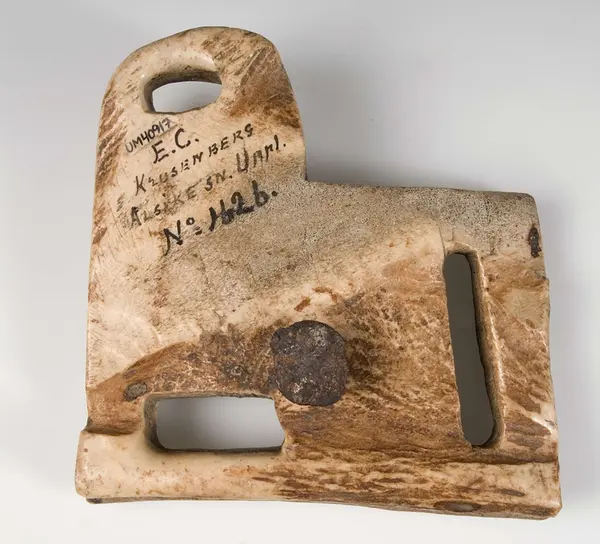 UM40917
E.C.
KRUSENBERG
ALSIKE SN. UPPL.
No: 1626.